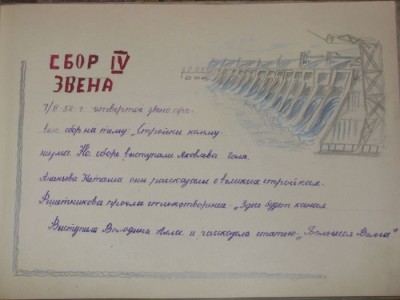 СБОР IV
ЗВЕНА
четвертое звено про-
вело сбор на тему „Стройки комму
низма. На сборе выступали Яковлева Галя.
Ананьева Наташа они рассказали о великих стройках.
прочла стихотворение „Здесь будет канал
Выступила Володина Алла и рассказала статью „Большая Волга"